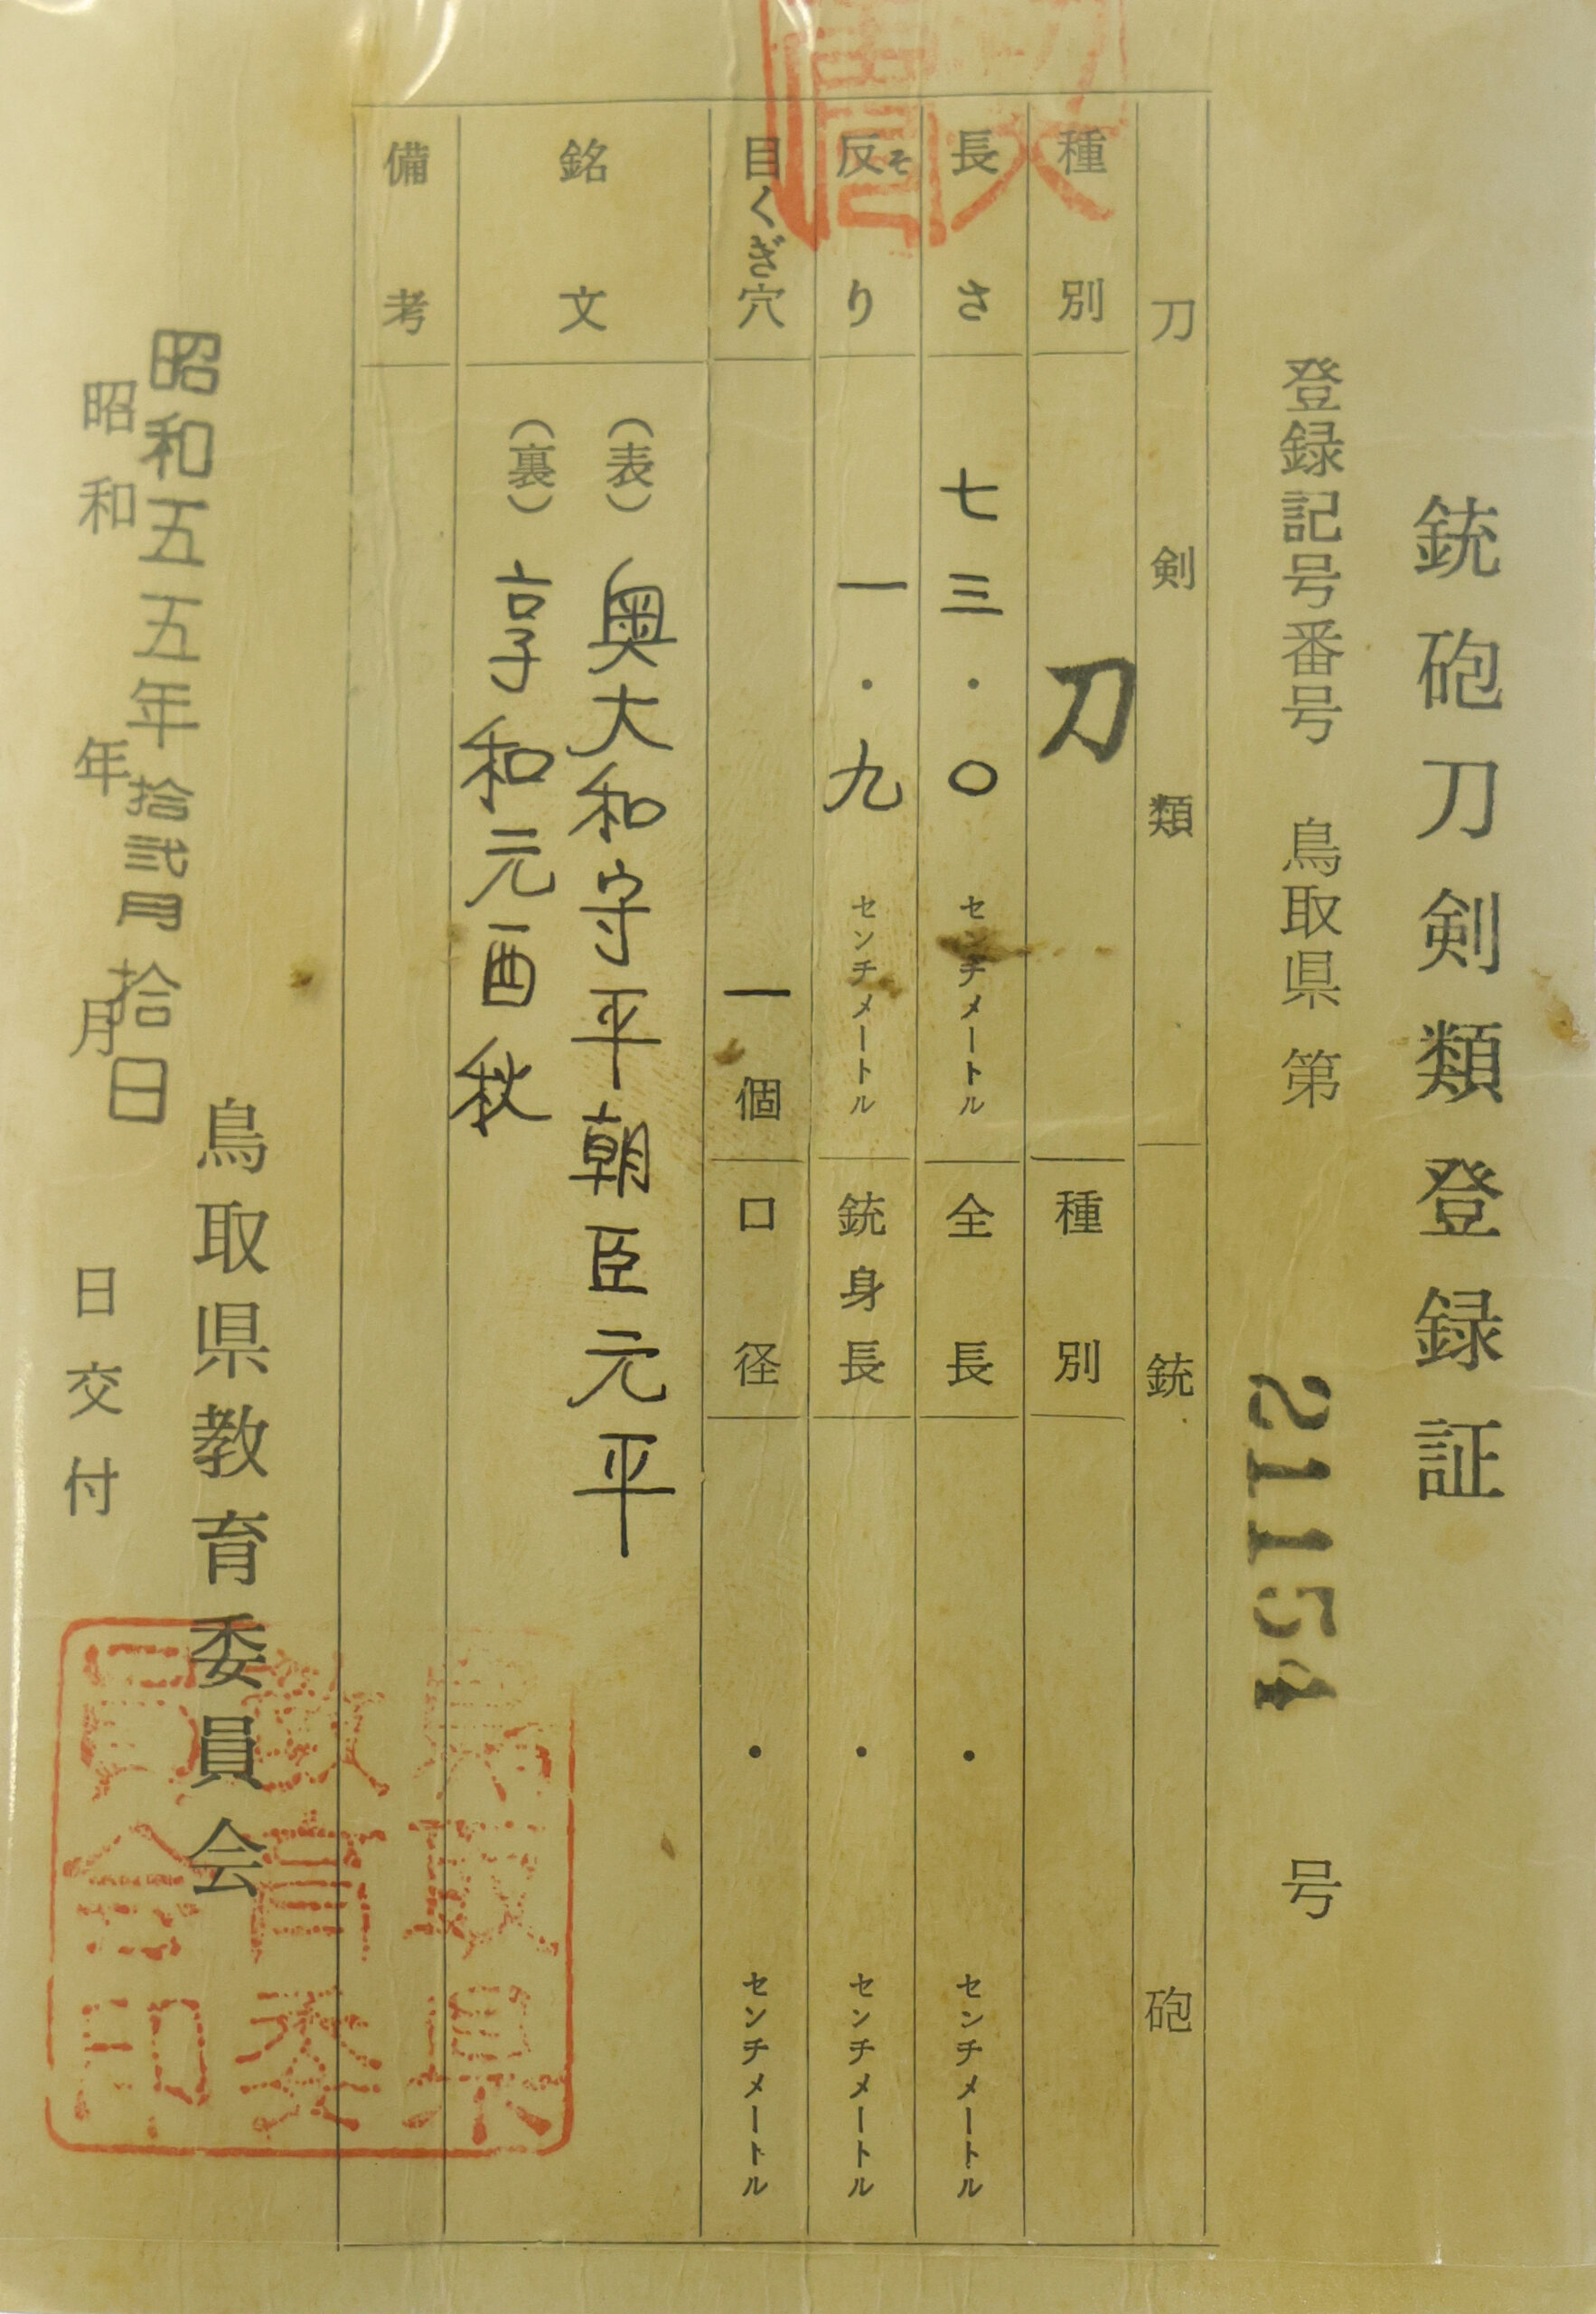 銃砲刀剣類登録証
登録記号番号 鳥取県 第 21154 号
刀剣類 銃砲
種別 刀 種別
長さ 七三・〇 センチメートル 全長 ・ センチメートル
反そり 一・九 センチメートル 銃身長 ・ センチメートル
目くぎ穴 一個 口径 ・ センチメートル
銘文 (表) 奥大和守平朝臣元平
(裏) 享和元酉秋
備考
鳥取県教育委員会
昭和五五年拾弐月拾日
昭和 年 月 日交付
鳥取県
教育委
員会印